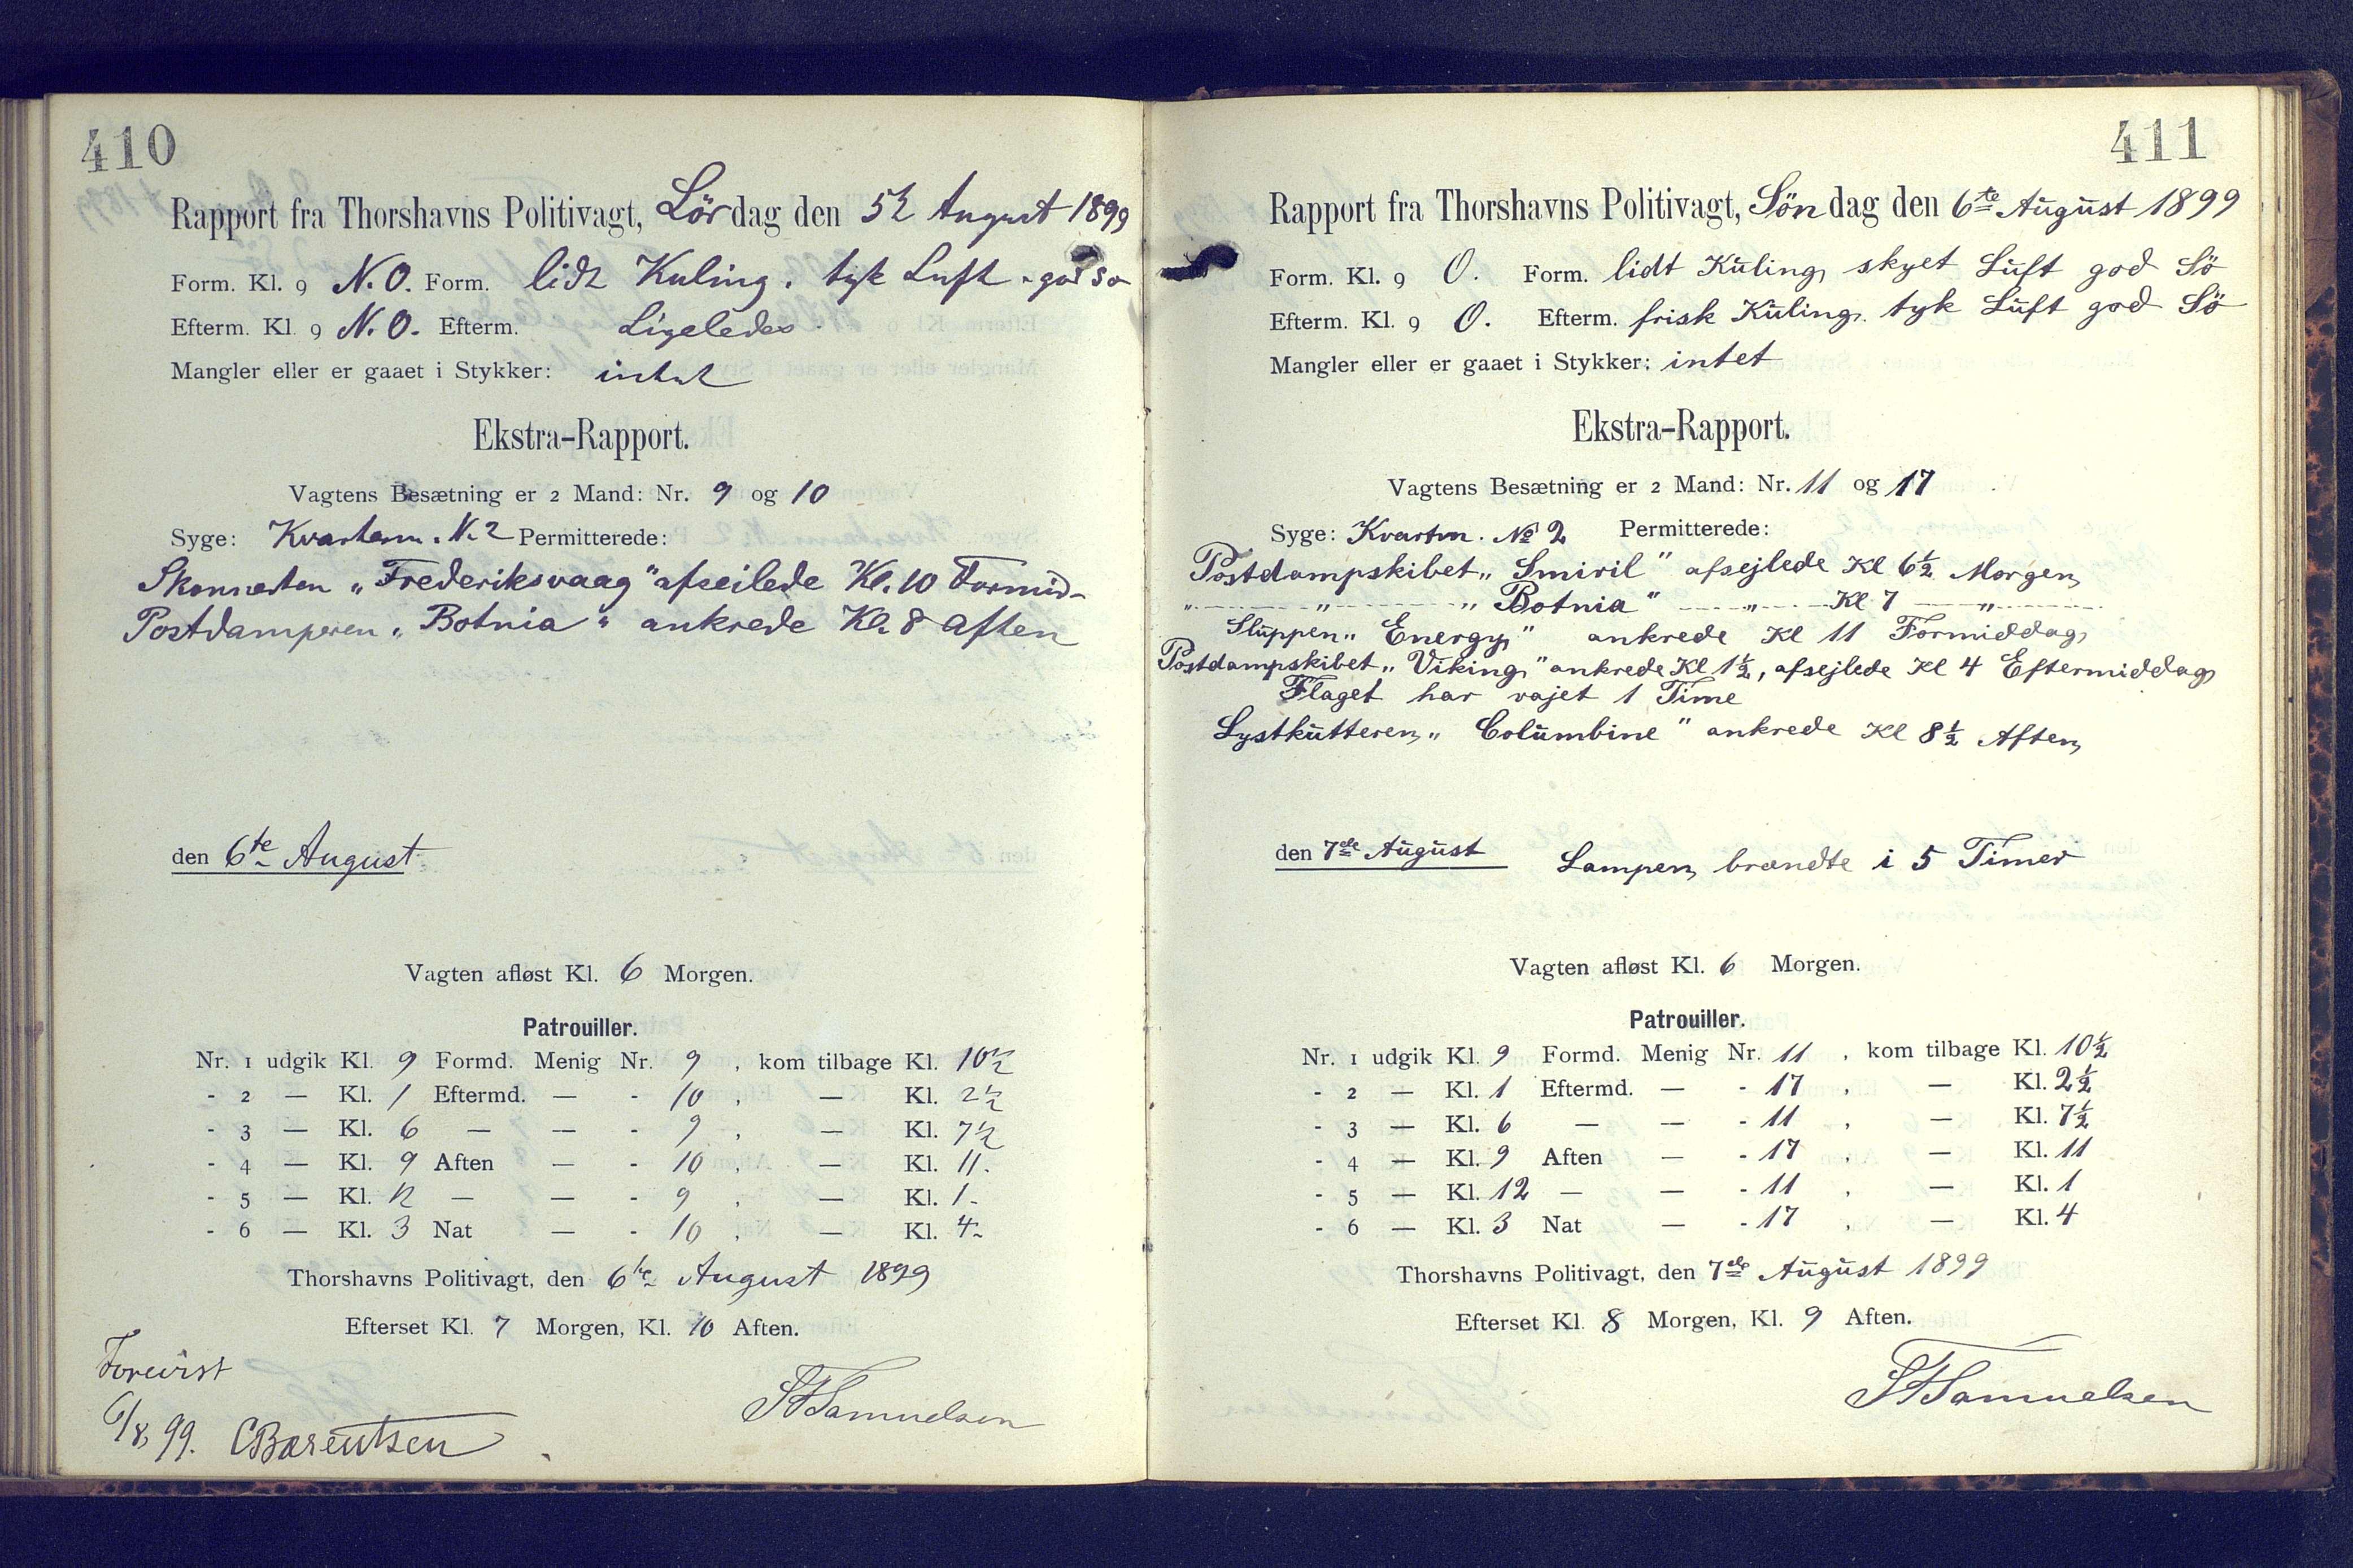 410
Rapport fra Thorshavns Politivagt, Lördag den 5te August 1899
Form. Kl. 9 N.O. Form. lidt Kuling. tyk Luft. god Sø
Efterm. Kl. 9 N.O. Efterm. Ligeledes
Mangler eller er gaaet i Stykker: intet
Ekstra-Rapport.
Vagtens Besætning er 2 Mand: Nr. 9 og 10
Syge: Kvarterm. N. 2 Permitterede:
Skonnerten „Frederiksvaag“ afseilede Kl. 10 Formid-
Postdamperen „Botnia“ ankrede Kl. 8 Aften
den 6te August
Vagten afløst Kl. 6 Morgen.
Patrouiller.
Nr. 1 udgik Kl. 9 Formd. Menig Nr. 9, kom tilbage Kl. 10½
- 2 — Kl. 1 Eftermd. — - 10, — Kl. 2½
- 3 — Kl. 6 — — - 9, — Kl. 7½
- 4 — Kl. 9 Aften — - 10, — Kl. 11.
- 5 — Kl. 12 — — - 9, — Kl. 1-
- 6 — Kl. 3 Nat — - 10, — Kl. 4-
Thorshavns Politivagt, den 6te August 1899
Efterset Kl. 7 Morgen, Kl. 10 Aften.
Forevist
6/8 99. CBærentsen
Samuelsen
411
Rapport fra Thorshavns Politivagt, Söndag den 6te August 1899
Form. Kl. 9 O. Form. lidt Kuling, skyet Luft god Sö
Efterm. Kl. 9 O. Efterm. frisk Kuling. tyk Luft god Sö
Mangler eller er gaaet i Stykker: intet
Ekstra-Rapport.
Vagtens Besætning er 2 Mand: Nr. 11 og 17
Syge: Kvartm. No 2 Permitterede:
Postdampskibet „Smiril“ afsejlede Kl 6½ Morgen,
„ „ „Botnia“ „ Kl 7 „
Sluppen „Energy“ ankrede Kl 11 Formiddag,
Postdampskibet „Viking“ ankrede Kl 1½, afsejlede Kl 4 Eftermiddag,
Flaget har vajet 1 Time
Lystkutteren, „Columbine“ ankrede Kl 8½ Aften,
den 7de August Lampen, brændte i 5 Timer
Vagten afløst Kl. 6 Morgen.
Patrouiller.
Nr. 1 udgik Kl. 9 Formd. Menig Nr. 11, kom tilbage Kl. 10½
- 2 — Kl. 1 Eftermd. — - 17, — Kl. 2½
- 3 — Kl. 6 — — - 11, — Kl. 7½
- 4 — Kl. 9 Aften — - 17, — Kl. 11
- 5 — Kl. 12 — — - 11, — Kl. 1
- 6 — Kl. 3 Nat — - 17, — Kl. 4
Thorshavns Politivagt, den 7de August 1899
Efterset Kl. 8 Morgen, Kl. 9 Aften.
Samuelsen